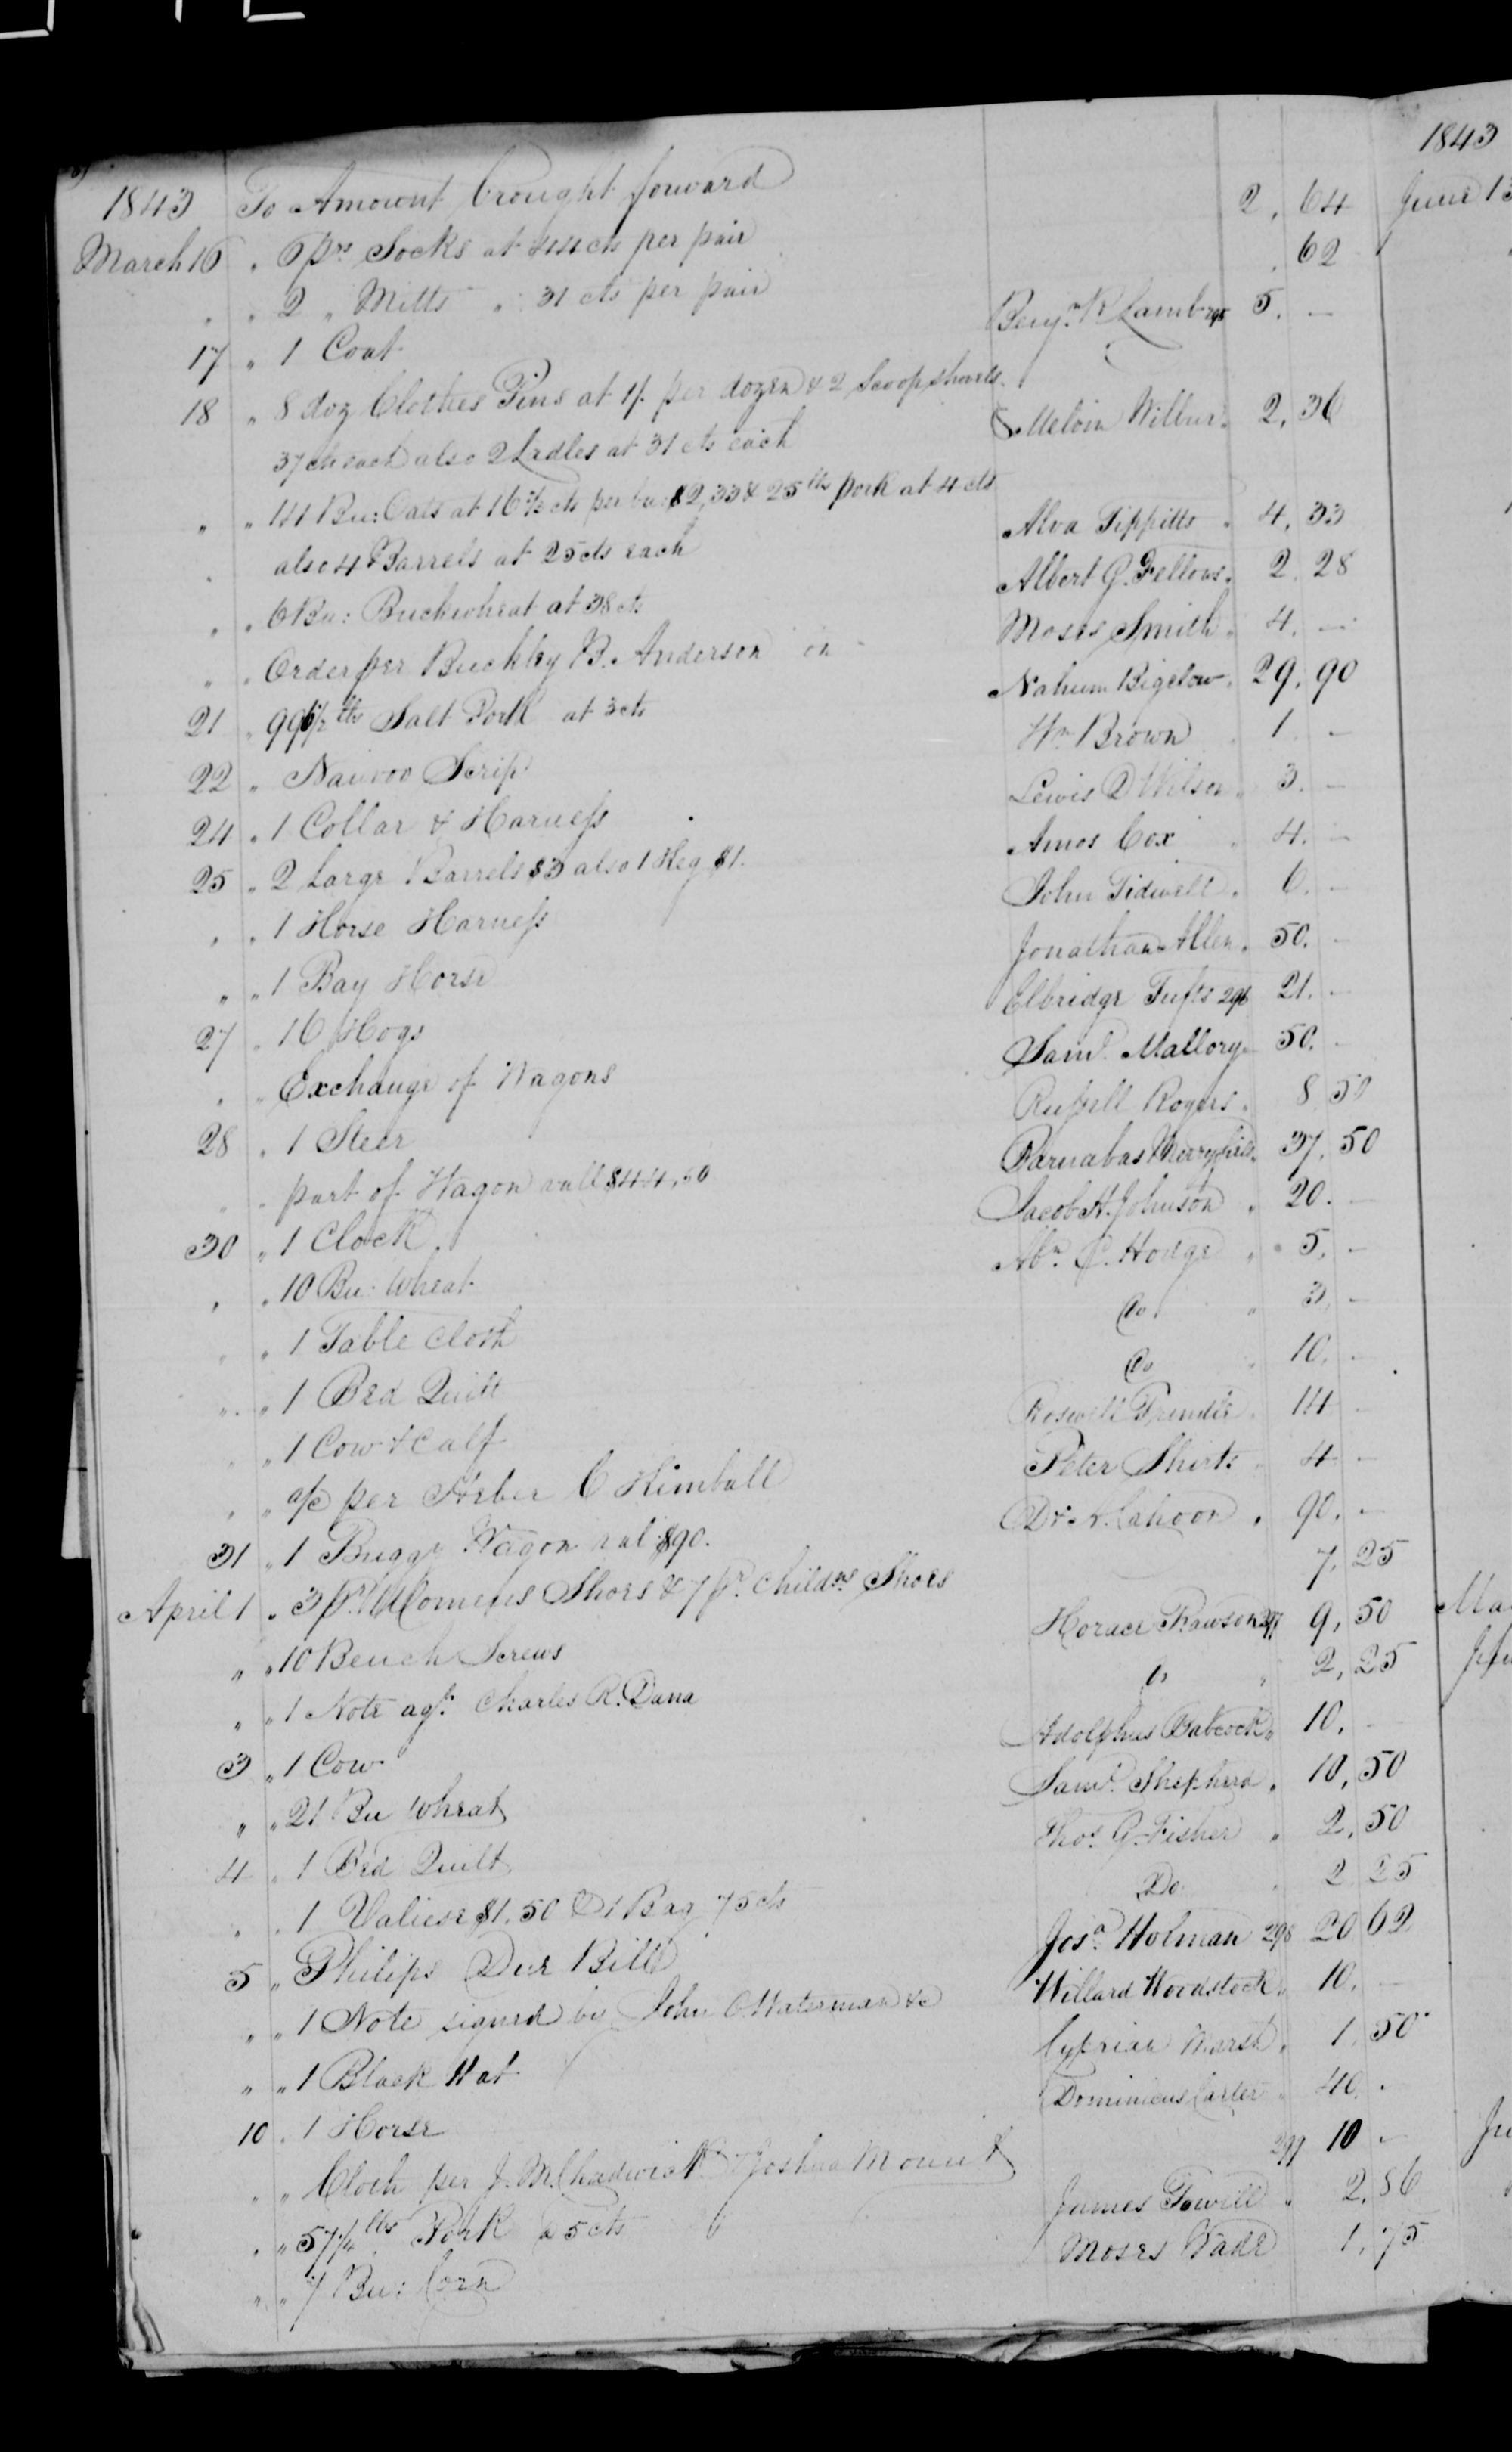 1843 To Amount brought forward
March 16 " 6 prs Socks at 44 cts per pair 2, 64
" " 2 " Mitts " 31 cts per pair , 62
17 " 1 Coat Benjn R Lamb 295 5. —
18 " 8 doz Clothes Pins at 1/. per dozen & 2 Scoop shovels
37 cts each also 2 Ladles at 31 cts each Melvin Wilbur " 2, 36
" " 14 Bu: Oats at 16 2/3 cts per bu: $2,33 & 25 lbs pork at 4 cts
" also 4 Barrels at 25 cts each Alva Tippitts " 4, 33
" " 6 Bu: Buckwheat at 38 cts Albert G. Fellows " 2. 28
" " Order per Buckley B. Anderson on Moses Smith " 4. —
21 " 996 1/2 lbs Salt Pork at 3 cts Nahum Bigelow " 29, 90
22 " Nauvoo Scrip Wm Brown " 1. —
24 " 1 Collar & Harness Lewis D Wilson " 3. —
25 " 2 Large Barrels $3 also 1 Keg $1. Amos Cox " 4. —
" " 1 Horse Harness John Tidwell " 6. —
" " 1 Bay Horse Jonathan Allen " 50. —
27 " 16 Hogs Elbridge Tufts 296 21. —
" " Exchange of Wagons Saml Mallory " 50. —
28 " 1 Steer Russell Rogers " 8 50
" " part of Wagon vall $44,50 Barnabas Merryfield " 37, 50
30 " 1 Clock Jacob H. Johnson " 20. —
" " 10 Bu. Wheat Abm C. Hodge " 5, —
" " 1 Table cloth Do " 3, —
" " 1 Bed Quilt Do " 10, —
" " 1 Cow & Calf Roswell " 14 —
" " a/c per Heber C Kimball Peter Shirts " 4 —
31 " 1 Buggy Wagon val $90. Dr. R. Cahoon " 90. —
April 1 " 3 pr. Womens Shoes & 7 pr. childns Shoes 7, 25
" " 10 Bench Screws Horace Rawson 297 9, 50
" " 1 Note agt. Charles R. Dana Do " 2, 25
3 " 1 Cow Adolphus Babcock " 10, —
" " 21 Bu Wheat Saml Shepherd " 10, 50
4 " 1 Bed Quilt Thos G. Fisher " 2, 50
" " 1 Valiese $1.50 & 1 Bag 75 cts Do " 2 25
5 " Philips Due Bill Josa Holman 298 20 62
" " 1 Note signed by John O. Waterman &c Willard Woodstock " 10. —
" " 1 Black Hat Cyprian Marsh " 1, 50
10 " 1 Horse Dominicus Carter " 40. —
" " Cloth per J. M. Chadwick & Joshua Mount 299 10 —
" " 57 1/4 lbs Pork a 5 cts James " 2, 86
" " 7 Bu: Corn Moses Wade 1, 75
1843
June 13